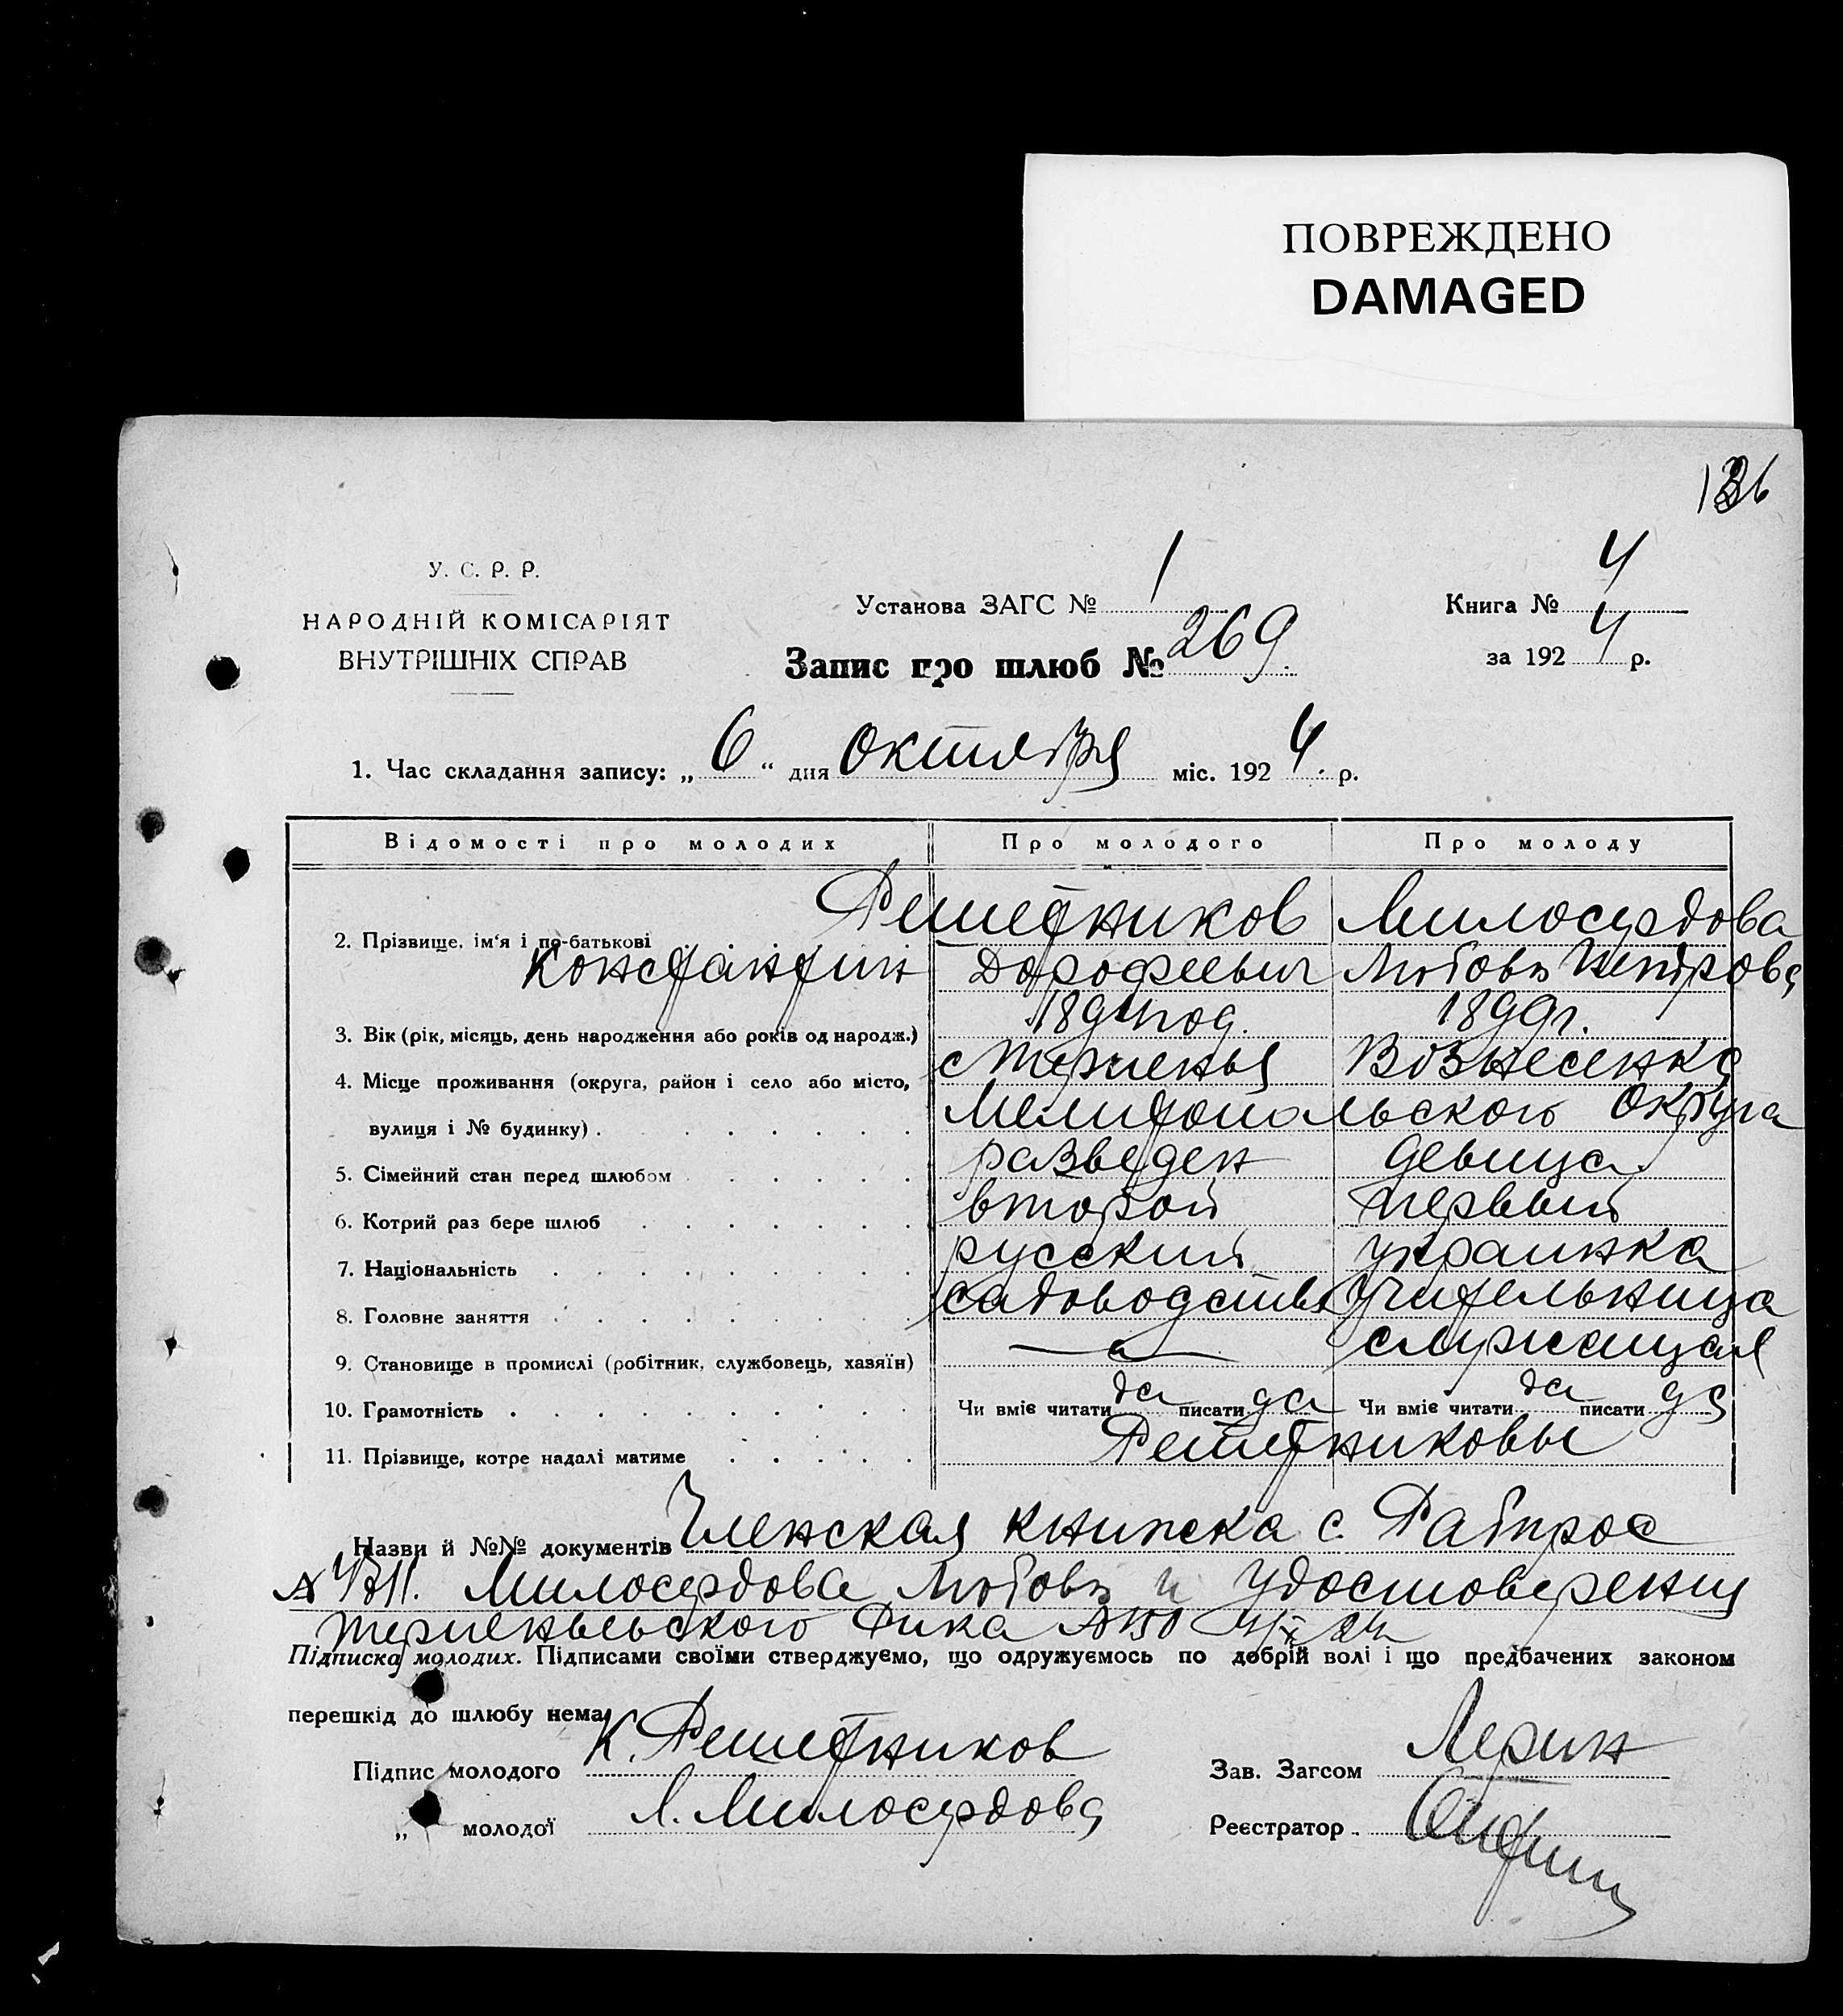 ПОВРЕЖДЕНО
DAMAGED
У. С. Р. Р.
НАРОДНІЙ КОМІСАРІЯТ
ВНУТРІШНІХ СПРАВ
Установа ЗАГС № 1
Книга № 4
Запис про шлюб № 269.
за 1924 р.
1. Час складання запису: „6“ дня Октября міс. 1924. р.
Відомості про молодих Про молодого Про молоду
2. Прізвище, ім'я і по-батькові Решетников Милосердова
Константин Дорофеевич Любовь Петрова
3. Вік (рік, місяць, день народження або років од народж.) 1894 год. 1899 г.
4. Місце проживання (округа, район і село або місто, с Терпенья Вознесенка
вулиця і № будинку) Мелитопольского Округа
5. Сімейний стан перед шлюбом разведен девица
6. Котрий раз бере шлюб второй первый
7. Національність русский украинка
8. Головне заняття садоводство Учительница
9. Становище в промислі (робітник, службовець, хазяїн) служащая
10. Грамотність Чи вміє читати да писати да Чи вміє читати да писати да
11. Прізвище, котре надалі матиме Решетниковы
Назви й №№ документів Членская книжка с. Рабпрос
Милосердова Любовь и удостоверения
Терпеньевского
Підписка молодих. Підписами своїми стверджуємо, що одружуємось по добрій волі і що предбачених законом
перешкід до шлюбу нема
Підпис молодого К. Решетников Зав. Загсом
„ молодої Л. Милосердова Реєстратор